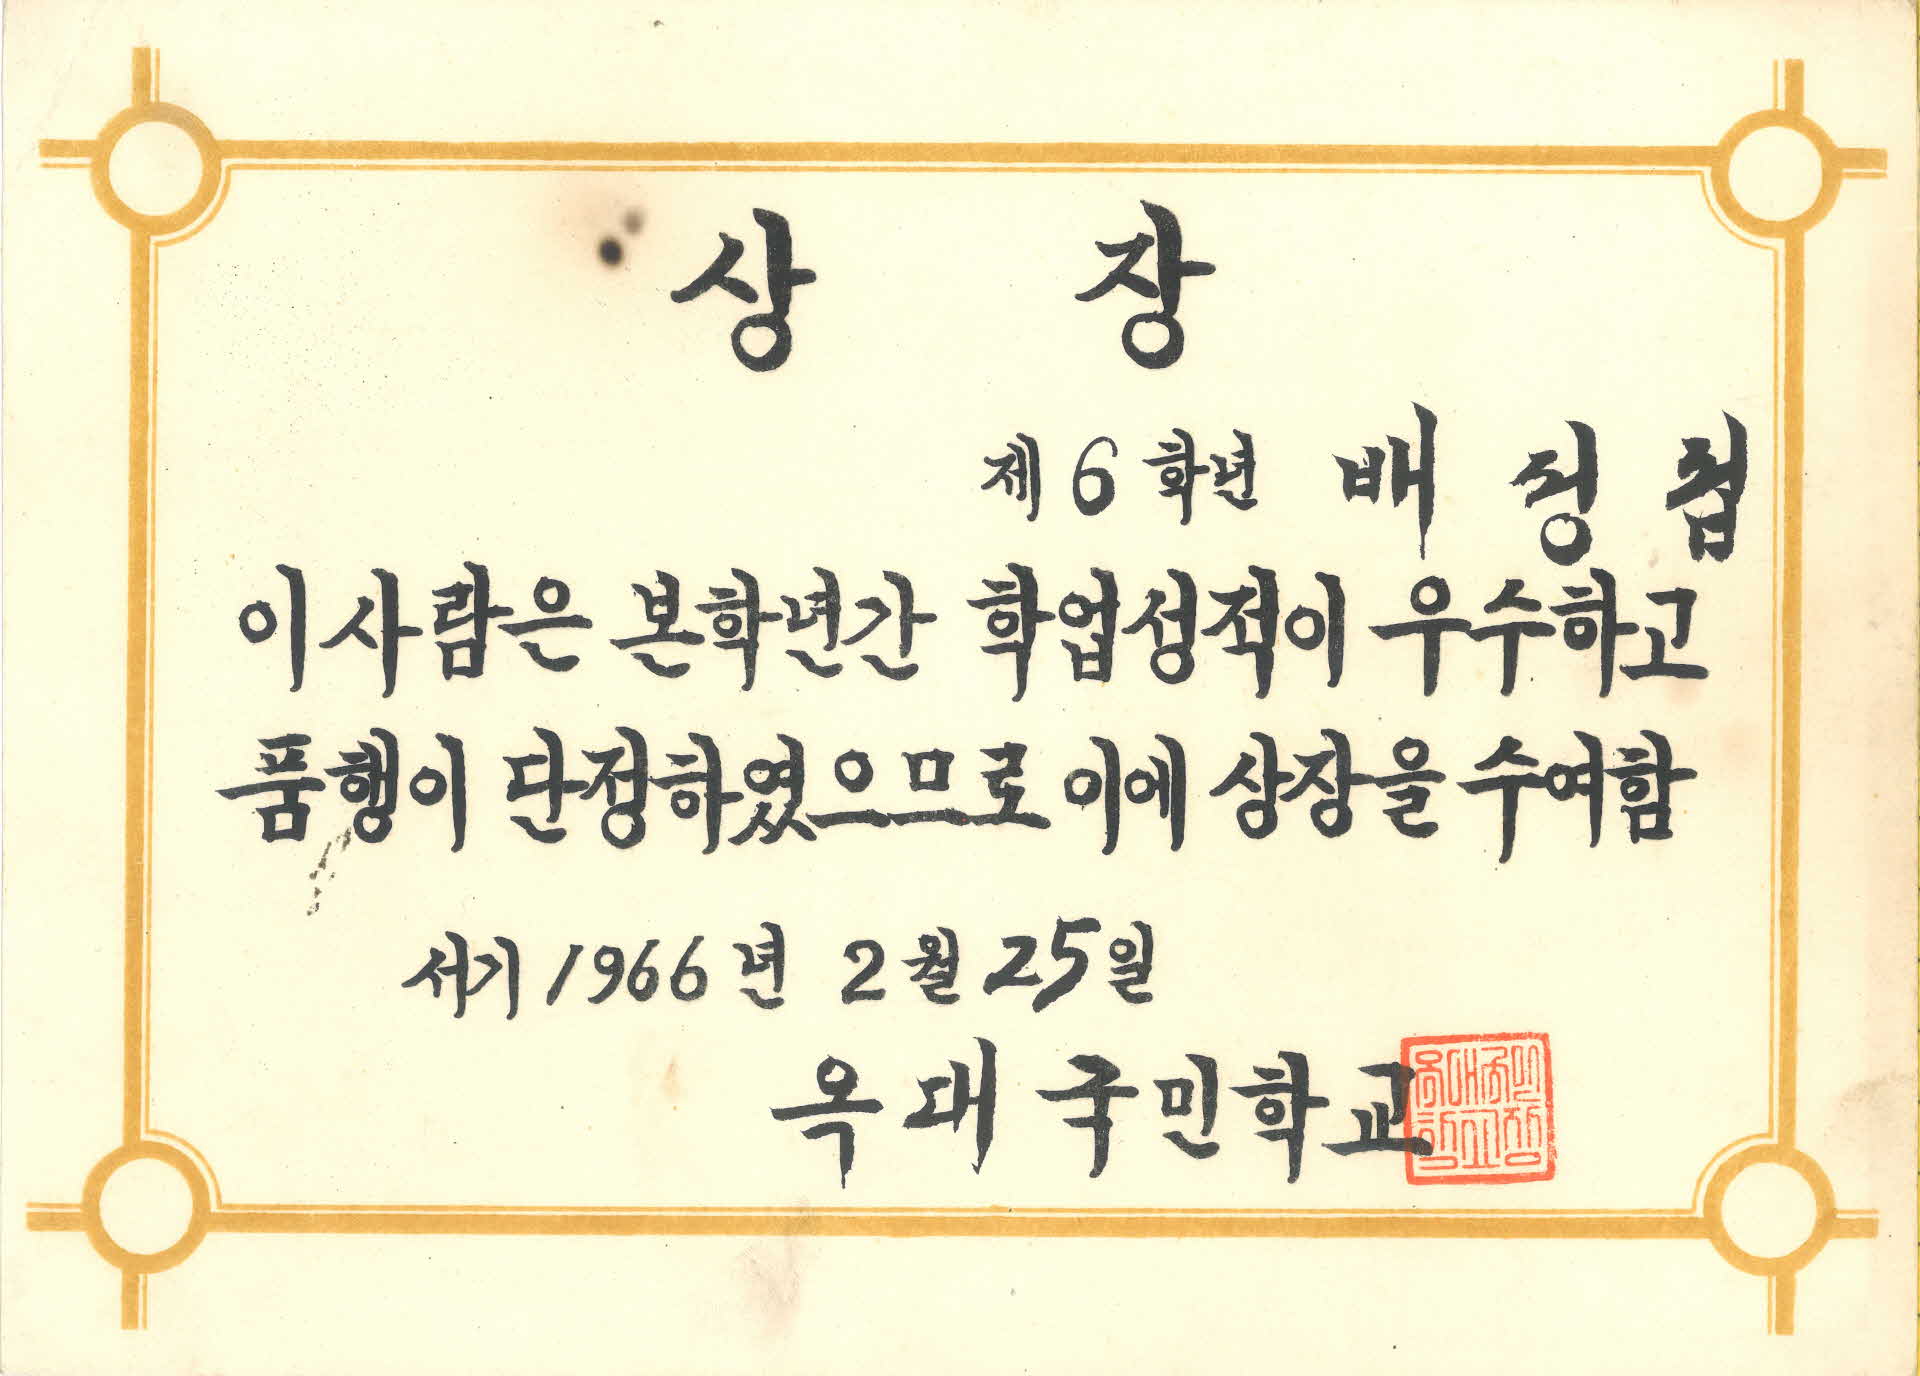 상 장
제 6 학년 배 정 첩
이 사람은 본학년간 학업성적이 우수하고
품행이 단정하였으므로 이에 상장을 수여함
서기 1966년 2월 25일
옥대국민학교